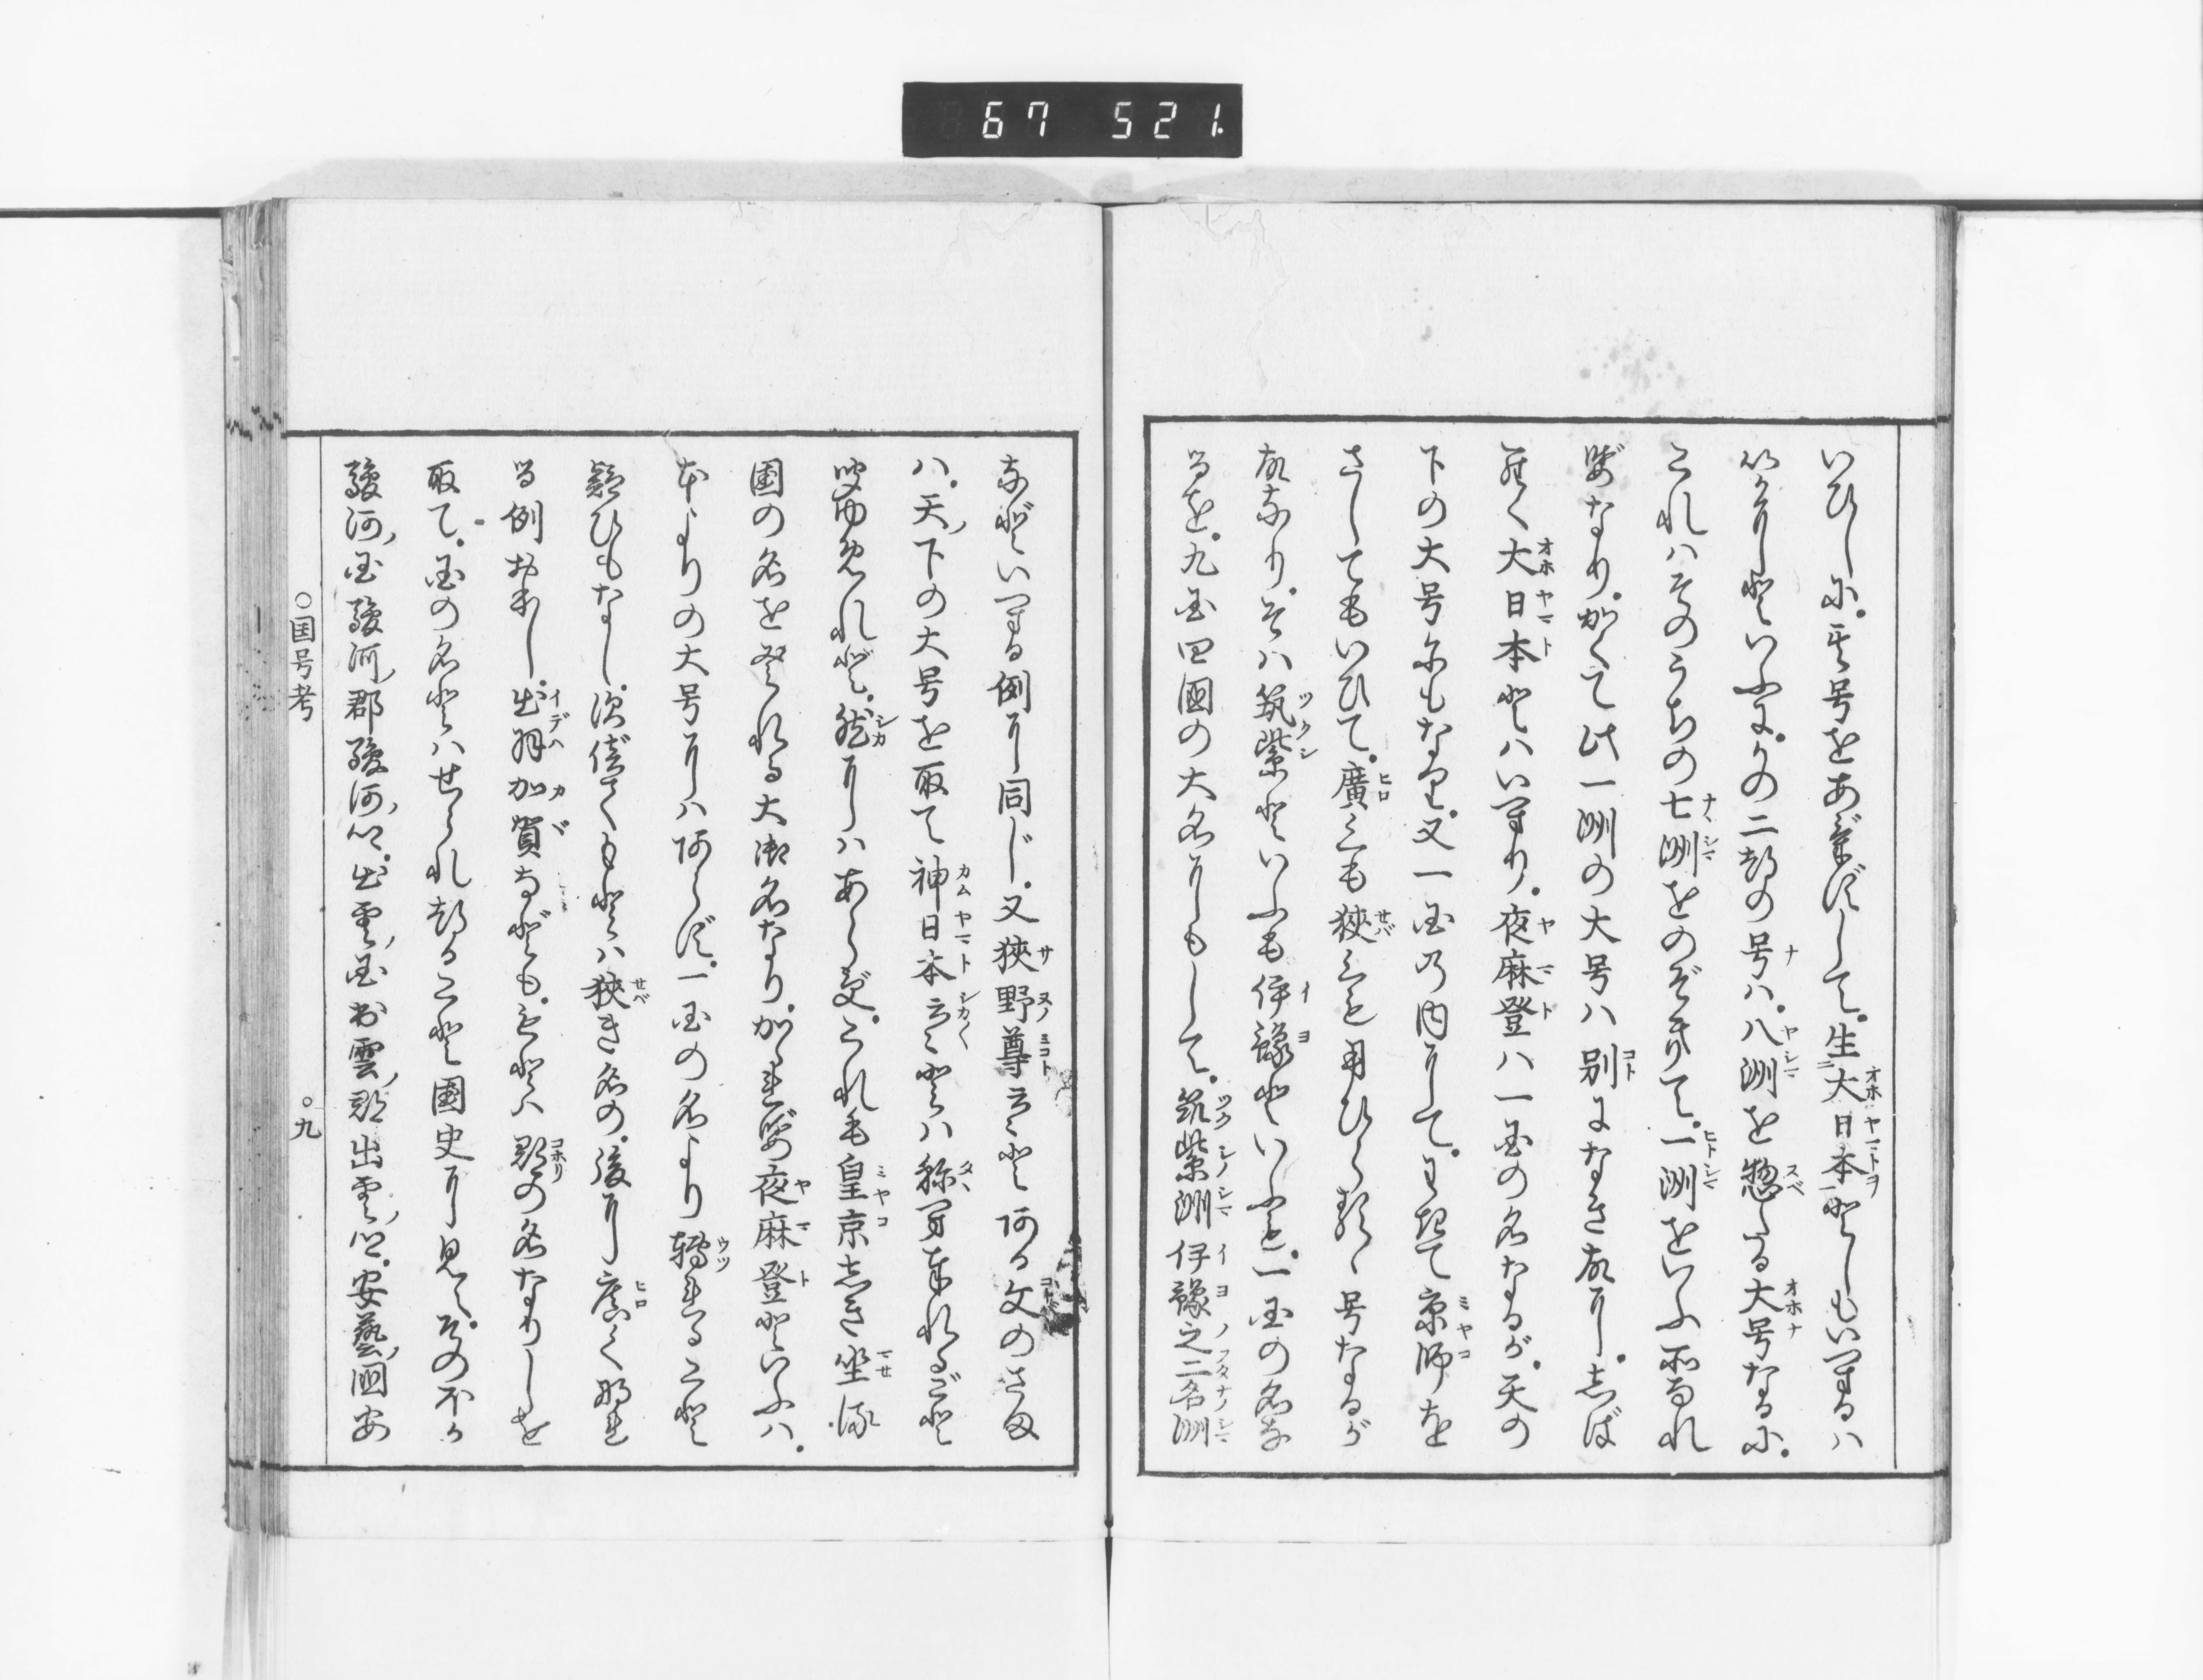 67 521.
いひしに。其号をあげずして。生大日本としもいへるハ
いかにといふに。かの二邦の号ハ。八洲を惣たる大号なるに。
これハそのうちの七洲をのぞきて。一洲をいふ所なれ
バなり。かくて此一洲の大号ハ別になき故に。しば
らく大日本とハいへり。夜麻登ハ一国の名なるが。天の
下の大号にもなり。又一国の内にして。わきて京師を
さしてもいひて。廣くも狭くも用ひらるゝ号なるが
故なり。そハ筑紫といふも伊豫といふも。一国の名な
るを。九国四國の大名にもして。筑紫洲伊豫之二名洲
などいへる例に同じ。又狭野尊云々とある文のさま
ハ。天下の大号を取て神日本云々とハ称へ奉れるごと
聞ゆめれど。然にハあらず。これも皇京しき坐る
国の名を登れる大御名なり。かゝれバ夜麻登といふハ。
本よりの大号にハあらず。一国の名より轉れること
疑ひもなし。須倍てもとハ狭き名の。後に廣くなれ
る例おおし。出羽加賀なども。もとハ郡の名なりしを
取て。国の名とハせられたること國史に見え。その外か
駿河国駿河郡駿河郷。出雲国出雲郡出雲郷。安藝國安
○国号考
○九